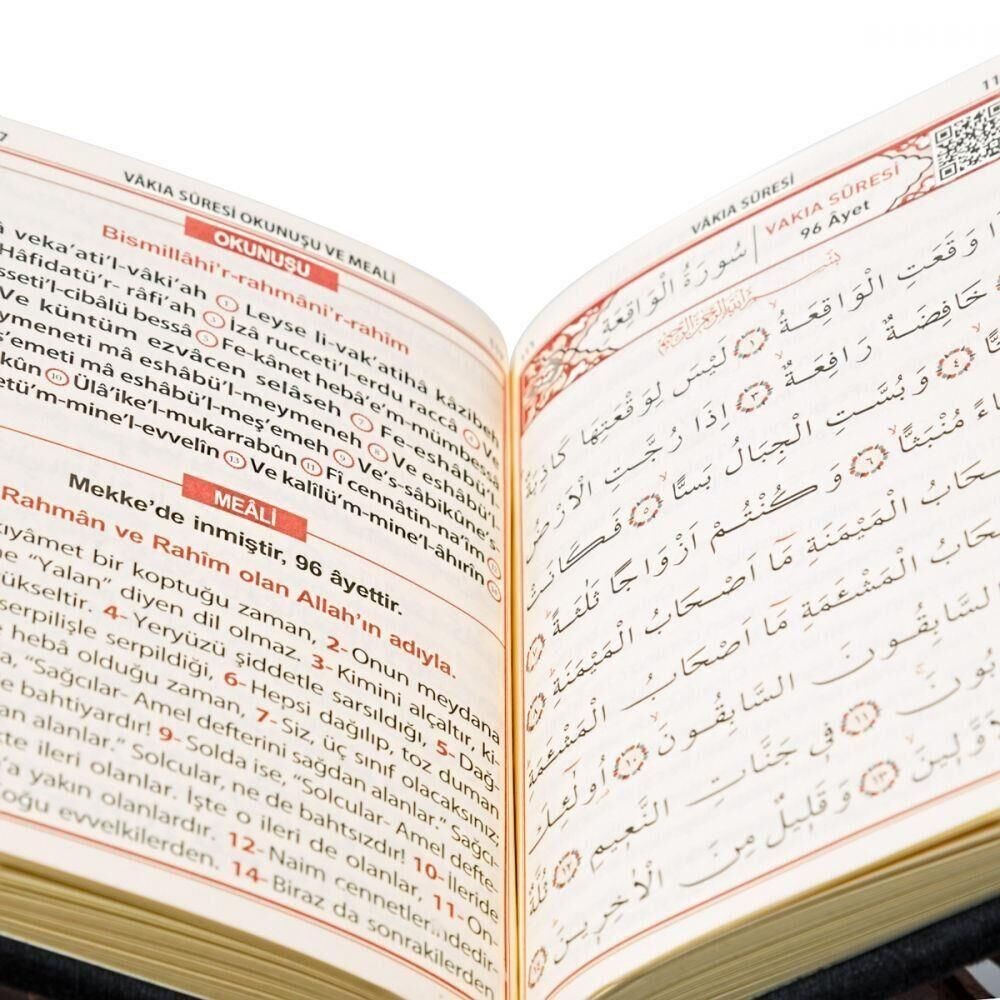 7
VÂKIA SÛRESİ OKUNUŞU VE MEALİ
OKUNUŞU
Bismillâhi'r-rahmâni'r-rahîm
veka'ati'l-vâki'ah ① Leyse li-vak'atihâ kâzibeh
Hâfidatü'r- râfi'ah ③ İzâ rucceti'l-erdu raccâ ④ Ve
sseti'l-cibâlü bessâ ⑤ Fe-kânet hebâ'e'm-mümbessâ
Ve küntüm ezvâcen selâseh ⑦ Fe-eshâbü'l-
ymeneti mâ eshâbü'l-meymeneh ⑧ Ve eshâbü'l-
ş'emeti mâ eshâbü'l-meş'emeh ⑨ Ve's-sâbikûne's-
kûn ⑩ Ülâ'ike'l-mukarrabûn ⑪ Fî cennâtin-na'îm ⑫
etü'm-mine'l-evvelîn ⑬ Ve kalîlü'm-mine'l-âhırîn ⑭
MEÂLİ
Mekke'de inmiştir, 96 âyettir.
Rahmân ve Rahîm olan Allah'ın adıyla.
kıyâmet bir koptuğu zaman, 2- Onun meydana
ne "Yalan" diyen dil olmaz. 3- Kimini alçaltır, ki-
ükseltir. 4- Yeryüzü şiddetle sarsıldığı, 5- Dağ-
serpilişle serpildiği, 6- Hepsi dağılıp, toz duman
e hebâ olduğu zaman, 7- Siz, üç sınıf olacaksınız;
a, "Sağcılar- Amel defterini sağdan alanlar." Sağcı-
e bahtiyardır! 9- Solda ise, "Solcular- Amel defte-
an alanlar." Solcular, ne de bahtsızdır! 10- İleride
te ileri olanlar. İşte o ileri de olanlar, 11- On-
'a yakın olanlardır. 12- Naim cennetlerindedir-
oğu evvelkilerden. 14- Biraz da sonrakilerden
11
VÂKIA SÛRESİ
VAKIA SÛRESİ
96 Âyet
سُورَةُ الْوَاقِعَةِ
بِسْمِ اللّٰهِ الرَّحْمٰنِ الرَّحِيمِ
ا وَقَعَتِ الْوَاقِعَةُ ﴿١﴾ لَيْسَ لِوَقْعَتِهَا كَاذِبَةٌ
خَافِضَةٌ رَافِعَةٌ ﴿٣﴾ اِذَا رُجَّتِ الْاَرْضُ
ًّا ﴿٤﴾ وَبُسَّتِ الْجِبَالُ بَسًّا ﴿٥﴾ فَكَانَتْ
اءً مُنْبَثًّا ﴿٦﴾ وَكُنْتُمْ اَزْوَاجًا ثَلٰثَةً ﴿٧﴾
حَابُ الْمَيْمَنَةِ مَٓا اَصْحَابُ الْمَيْمَنَةِ ﴿٨﴾
حَابُ الْمَشْـَٔمَةِ مَٓا اَصْحَابُ الْمَشْـَٔمَةِ
السَّابِقُونَ السَّابِقُونَ ﴿١٠﴾ اُو۬لٰٓئِكَ
بُونَ ﴿١١﴾ فٖي جَنَّاتِ النَّعٖيمِ ﴿١٢﴾ ثُلَّةٌ
وَّلٖينَ ﴿١٣﴾ وَقَلٖيلٌ مِنَ الْاٰخِرٖينَ ﴿١٤﴾